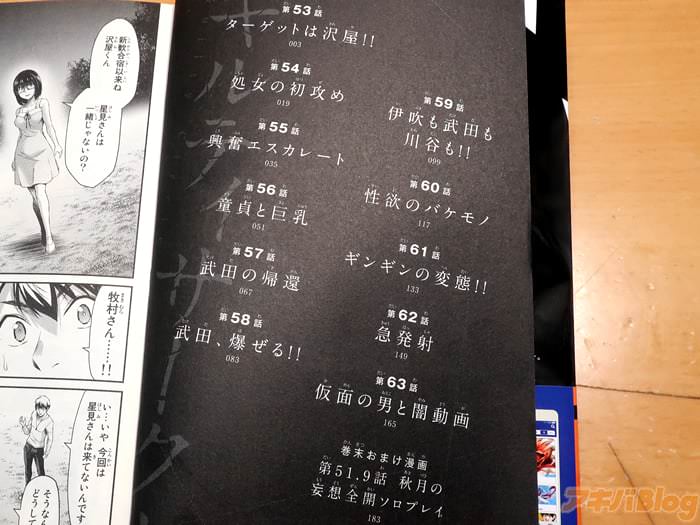 新歓合宿以来ね
沢屋くん
星見さんは
一緒じゃないの？
牧村さん……!!
い…いや 今回は
星見さんは来てないんです
そうなん
どうして
キルティサークル
第53話
ターゲットは沢屋!!
003
第54話
処女の初攻め
019
第55話
興奮エスカレート
035
第56話
童貞と巨乳
051
第57話
武田の帰還
067
第58話
武田、爆ぜる!!
083
第59話
伊吹も武田も
川谷も!!
099
第60話
性欲のバケモノ
117
第61話
ギンギンの変態!!
133
第62話
急発射
149
第63話
仮面の男と闇動画
165
巻末おまけ漫画
第51.9話 秋月の
妄想全開ソロプレイ
183
アキバBlog